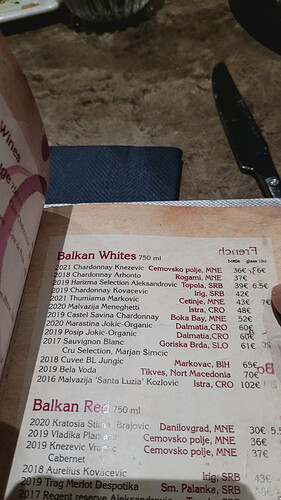 Wines
Balkan Whites 750 ml
bottle glass 15cl
2021 Chardonnay Knezevic Cemovsko polje, MNE 36€ 6€
2018 Chardonnay Arhonto Rogami, MNE 37€
2019 Harizma Selection Aleksandrovic Topola, SRB 39€ 6.5€
2019 Chardonnay Kovacevic Irig, SRB 42€
2021 Thumiama Markovic Cetinje, MNE 43€
2020 Malvazija Meneghetti Istra, CRO 48€
2019 Castel Savina Chardonnay Boka Bay, MNE 52€
2020 Marastina Jokic-Organic Dalmatia,CRO 60€
2019 Posip Jokic-Organic Dalmatia,CRO 60€
2017 Sauvignon Blanc Goriska Brda, SLO 61€
Cru Selection, Marjan Simcic
2018 Cuvee BL Jungic Markovac, BIH 65€
2019 Bela Voda Tikves, Nort Macedonia 70€
2016 Malvazija 'Santa Luzia' Kozlovic Istra, CRO 102€
Balkan Red 750 ml
2020 Kratosia Brajovic Danilovgrad, MNE 30€
2019 Vladika Cemovsko polje, MNE 36€
2019 Knezevic Cemovsko polje, MNE 37€
Cabernet
2018 Aurelius Kovacevic Irig, SRB 43€
2019 Trag Merlot Despotika Sm. Palanka, SRB
2017 Regent reserve
French